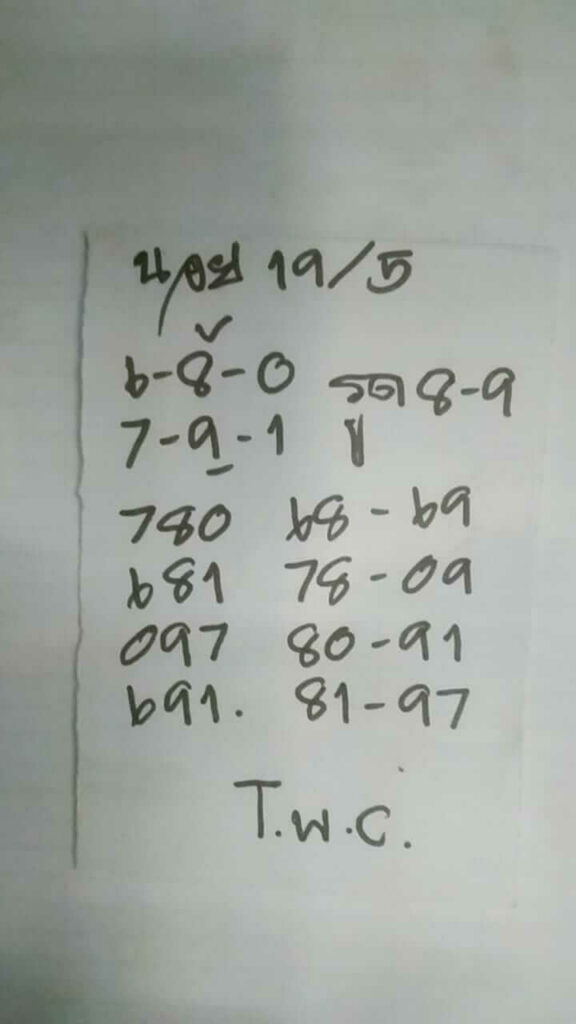 นอย 19/5
6-8-0 รูด 8-9
7-9-1
780 68-69
681 78-09
097 80-91
691. 81-97
T.W.C.